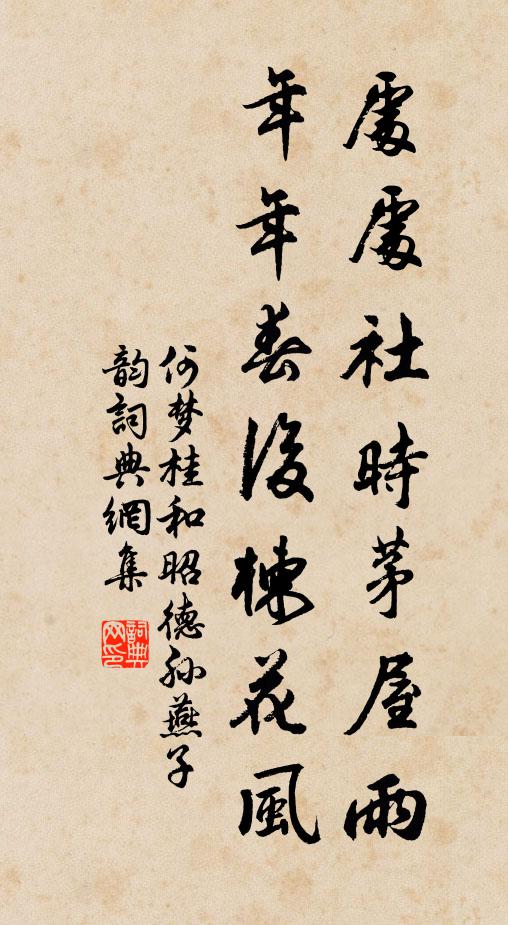 處處社時茅屋雨
年年春後楝花風
何梦桂和昭德孙燕子
韵詞典網集
詞典网印